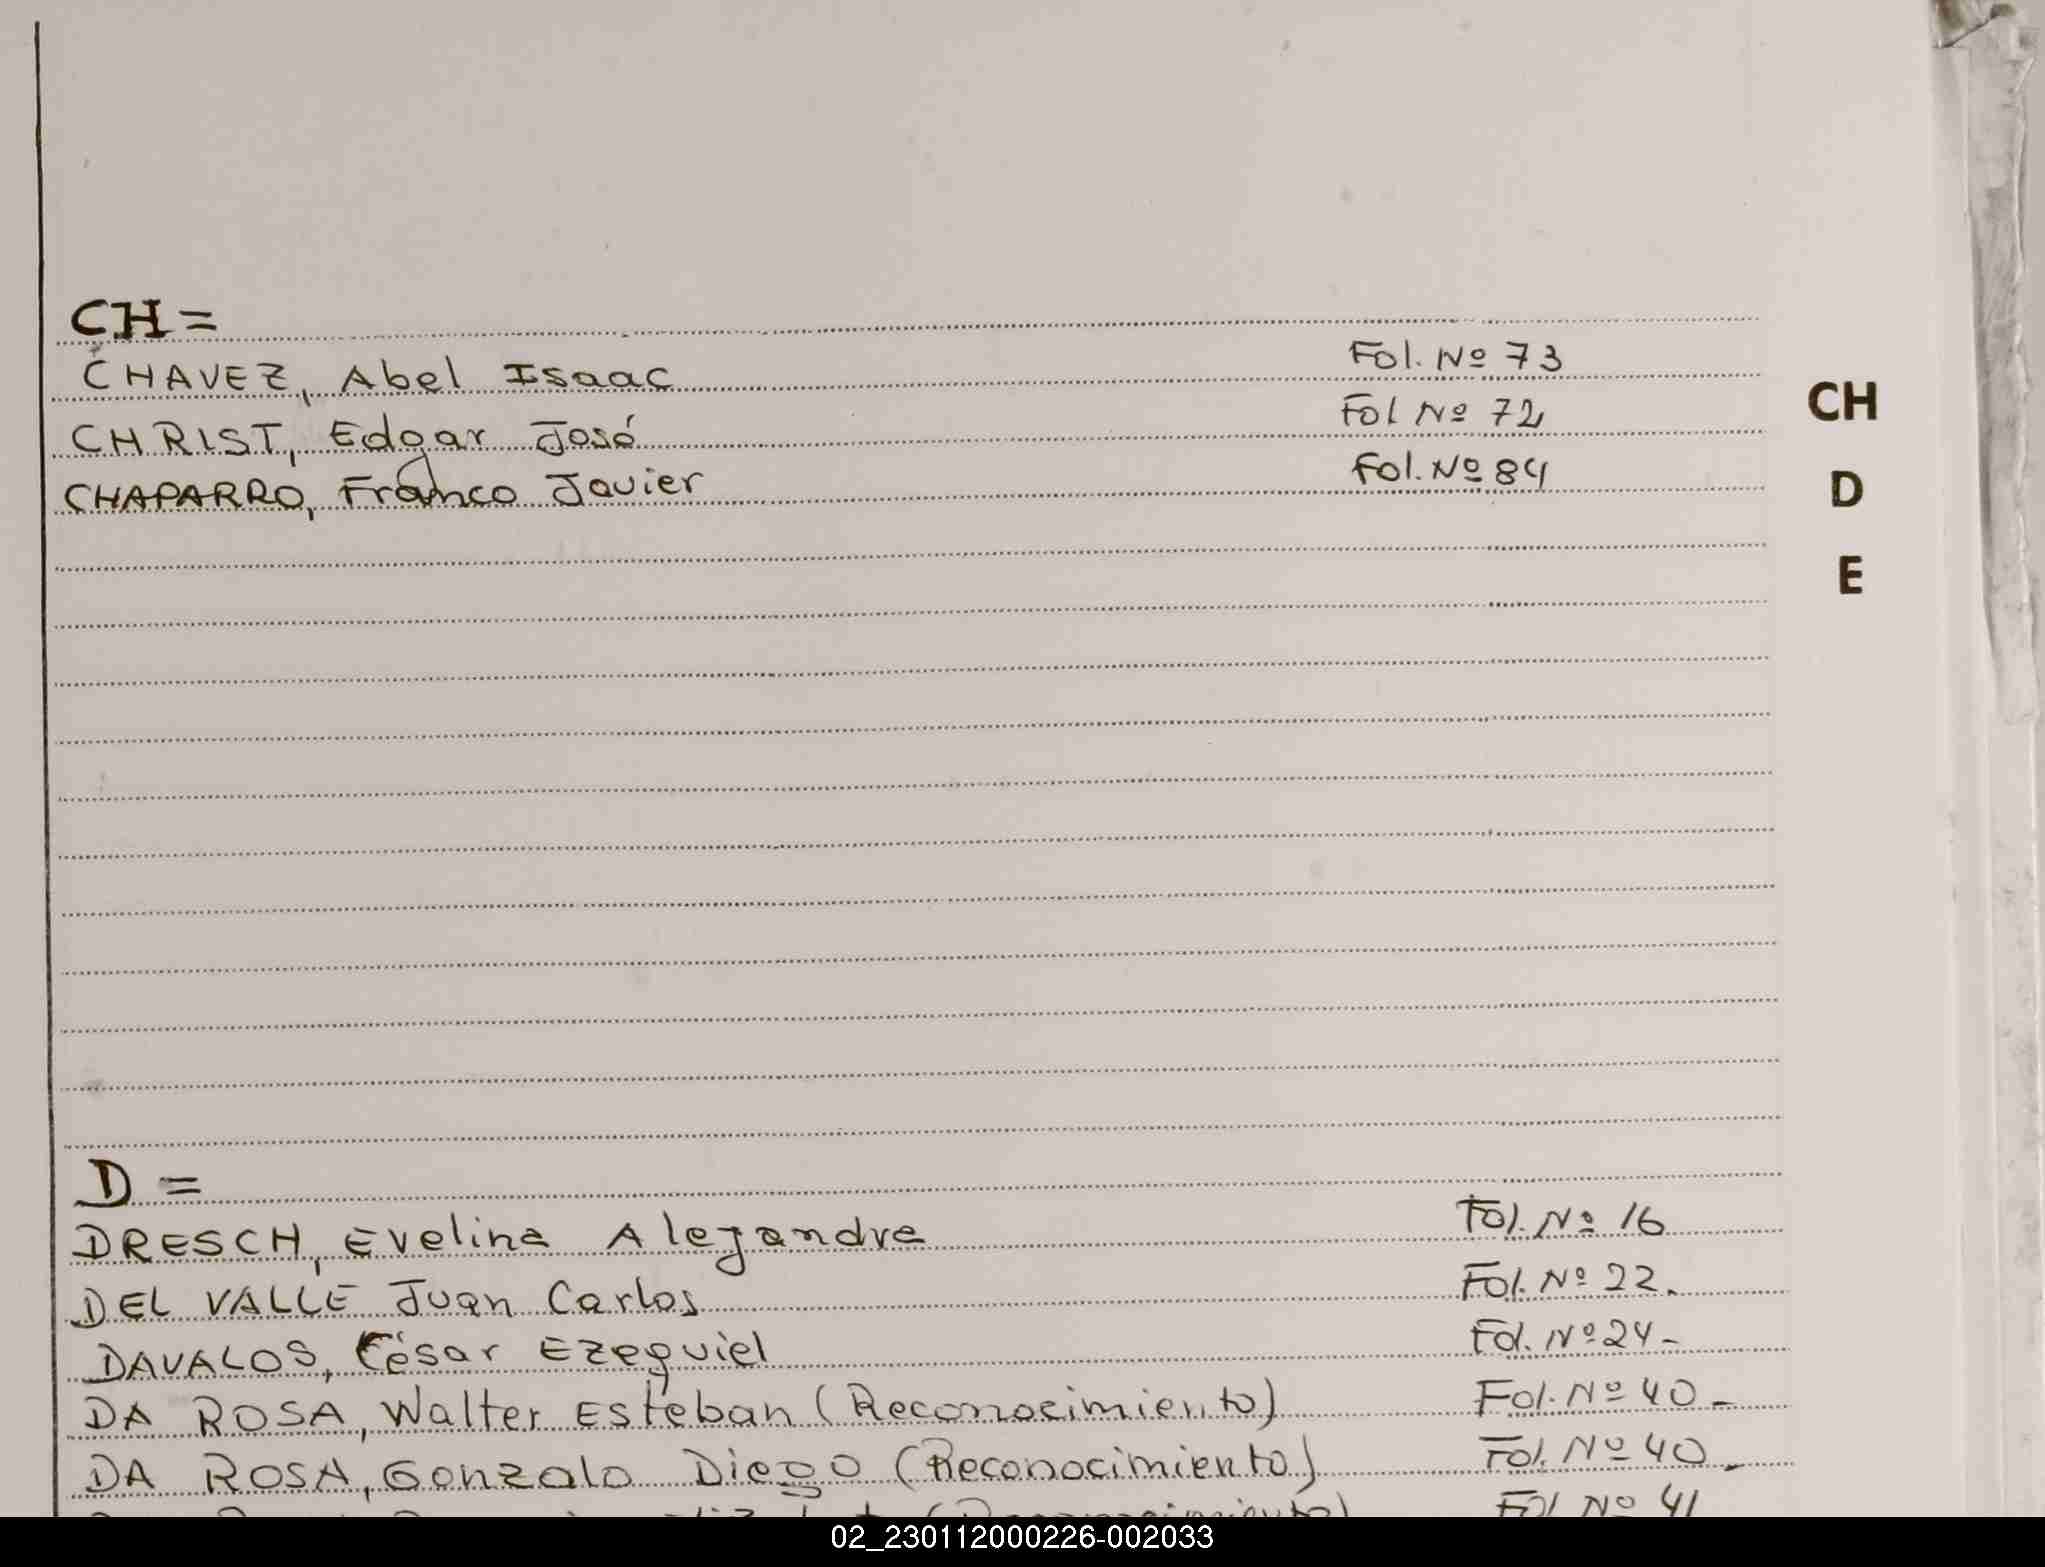 CH=
CHAVEZ, Abel Isaac Fol. Nº 73
CHRIST, Edgar José Fol Nº 72
CHAPARRO, Franco Javier Fol. Nº 84
CH
D
E
D =
DRESCH, Evelina Alejandra Fol. Nº 16
DEL VALLE Juan Carlos Fol. Nº 22.
DAVALOS, César Ezequiel Fol. Nº 24-
DA ROSA, Walter Esteban (Reconocimiento) Fol. Nº 40-
DA ROSA, Gonzalo Diego (Reconocimiento) Fol. Nº 40-
(Reconocimiento) Fol Nº 41
02_230112000226-002033